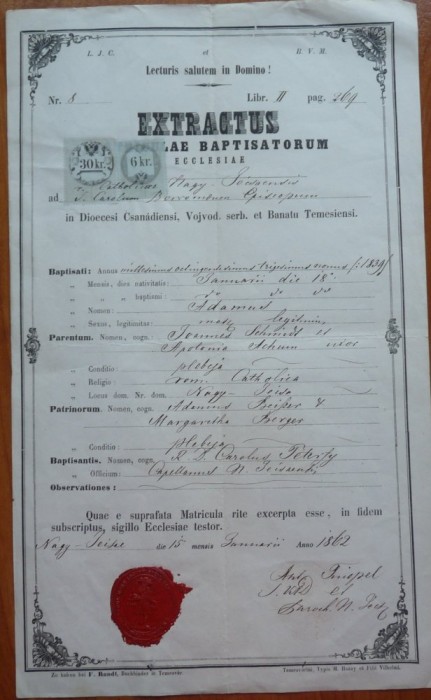 L. J. C. et B. V. M.
Lecturis salutem in Domino!
Nr. 8 Libr. II pag. 269
EXTRACTUS
LAE BAPTISATORUM
ECCLESIAE
30 kr. 6 kr.
Catholicae Nagy
ad S. Carolum Borromaeum Episcopum
in Dioecesi Csanádiensi, Vojvod. serb. et Banatu Temesiensi.
Baptisati: Annus millesimus octingentesimus trigesimus nonus /:1839:/
„ Mensis, dies nativitatis: Januarii die 18ª
„ „ „ baptismi: do do do
„ Nomen: Adamus
„ Sexus, legitimitas: mas, legitim.
Parentum. Nomen, cogn. Joannes Schmidt et
Apolonia Schum uxor
„ Conditio: plebeja
„ Religio: rom. Catholica
„ Locus dom. Nr. dom. Nagy-
Patrinorum. Nomen, cogn. Adamus &
Margaretha Berger
„ Conditio: plebeja
Baptisantis. Nomen, cogn. Carolus
„ Officium: Capellanus N.
Observationes:
Quae e suprafata Matricula rite excerpta esse, in fidem
subscriptus, sigillo Ecclesiae testor.
Nagy- die 15 mensis Januarii Anno 1862
Zu haben bei F. Bandl, Buchbinder in Temesvár.
Temesvarini, Typis M. Hazay et Fili Vilhelmi.